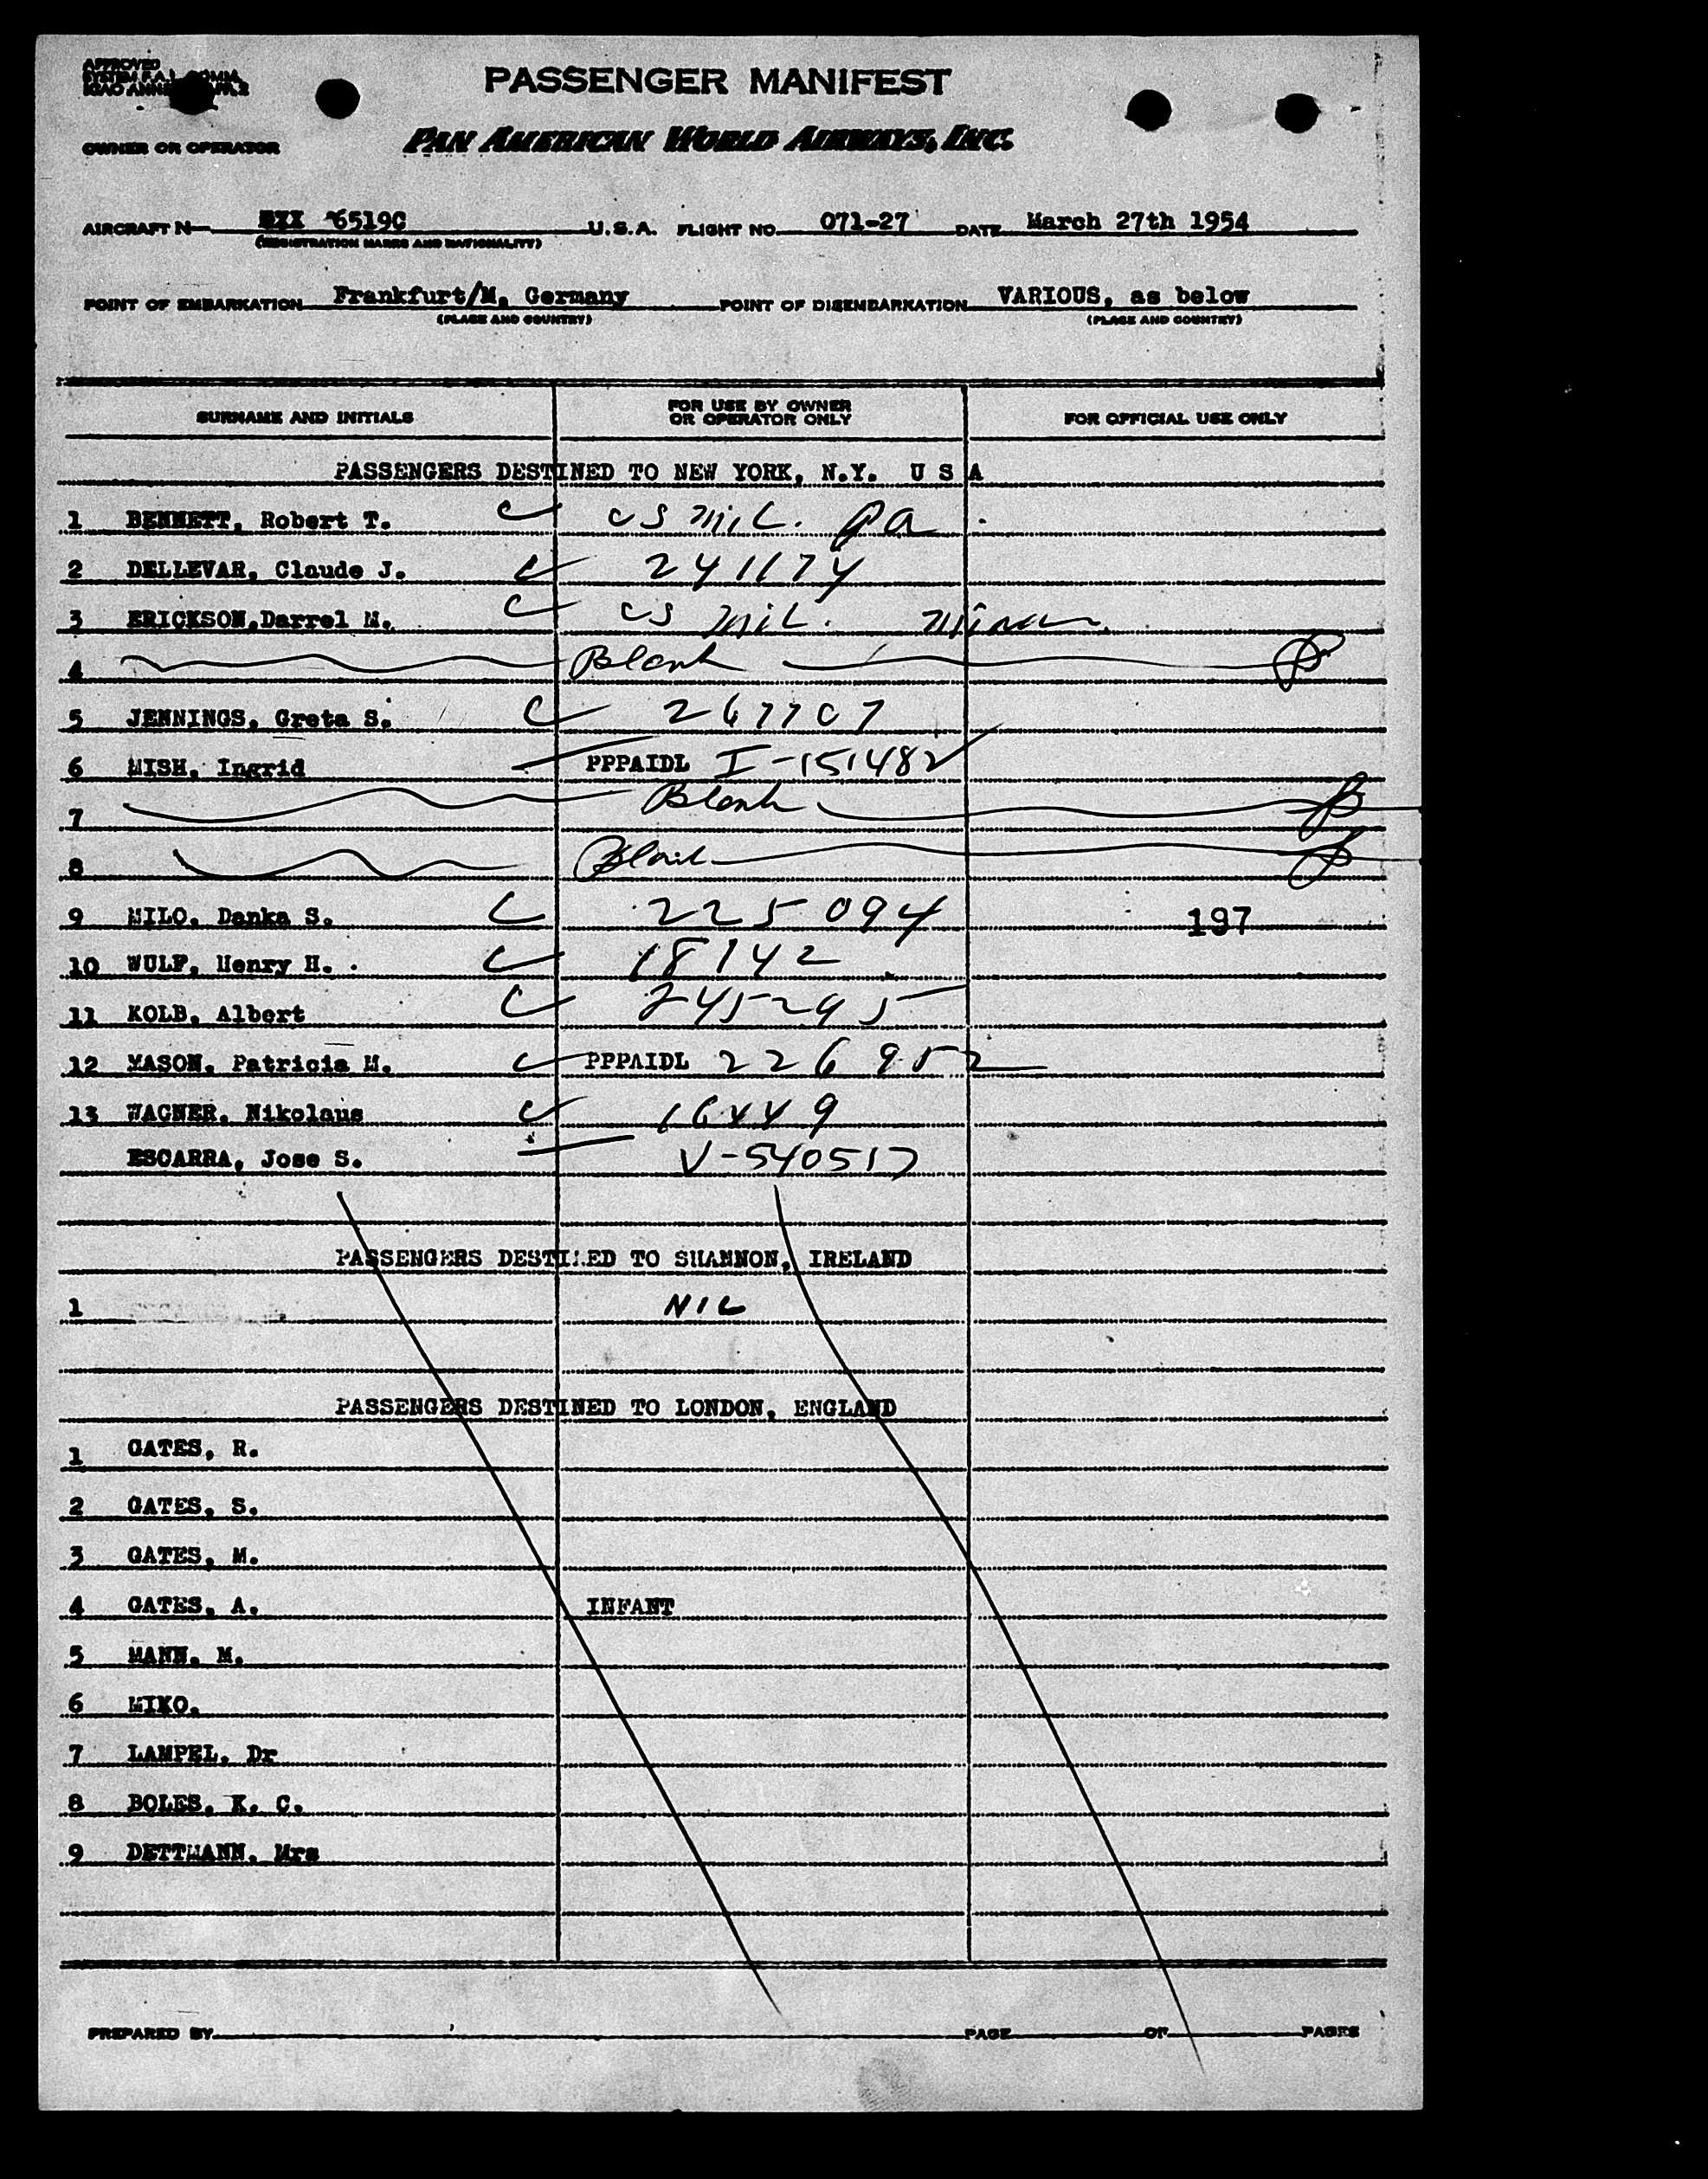 APPROVED
PASSENGER MANIFEST
OWNER OR OPERATOR
PAN AMERICAN WORLD AIRWAYS, INC.
AIRCRAFT N 6519C U.S.A. FLIGHT NO. 071-27 DATE March 27th 1954
(REGISTRATION MARKS AND NATIONALITY)
POINT OF EMBARKATION Frankfurt/M, Germany POINT OF DISEMBARKATION VARIOUS, as below
(PLACE AND COUNTRY) (PLACE AND COUNTRY)
SURNAME AND INITIALS FOR USE BY OWNER OR OPERATOR ONLY FOR OFFICIAL USE ONLY
PASSENGERS DESTINED TO NEW YORK, N.Y. U S A
1 BENNETT, Robert T. C US Mil. pa
2 DELLEVAR, Claude J. C 241174
3 ERICKSON, Darrel M. C US Mil.
4 Blank
5 JENNINGS, Greta S. C 267707
6 MISH, Ingrid PPPAIDL I-151482
7 Blank
8 Blank
9 MILO, Danka S. C 225094 197
10 WULF, Henry H. C 18142
11 KOLB, Albert C 245295
12 MASON, Patricia M. C PPPAIDL 226952
13 WAGNER, Nikolaus C 16449
ESCARRA, Jose S. V-540517
PASSENGERS DESTINED TO SHANNON, IRELAND
1 NIL
PASSENGERS DESTINED TO LONDON, ENGLAND
1 GATES, R.
2 GATES, S.
3 GATES, M.
4 GATES, A. INFANT
5 MANN, M.
6 MIKO.
7 LAMPEL, Dr
8 BOLES, K. C.
9 DETTMANN, Mrs
PREPARED BY PAGE OF PAGES